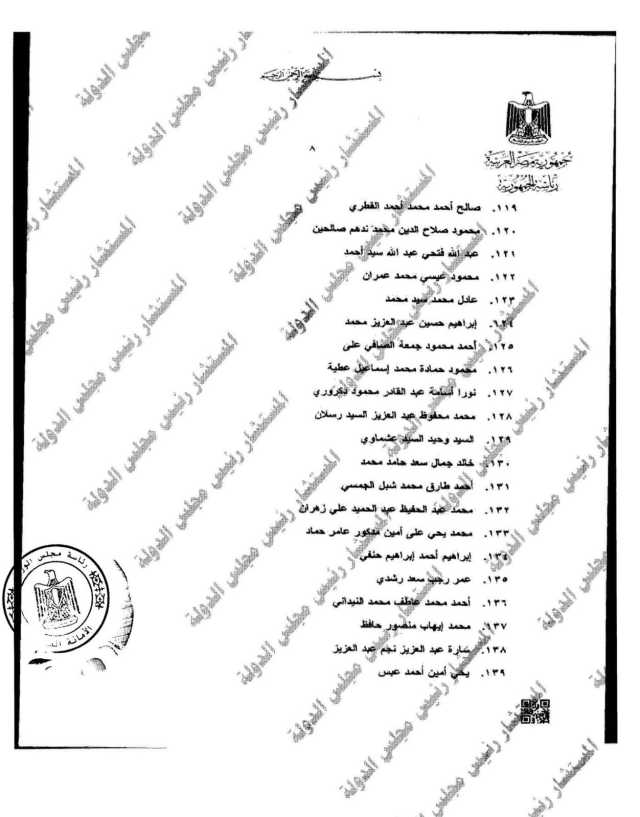 بسم الله الرحمن الرحيم
جمهورية مصر العربية
رئاسة الجمهورية
٨
١١٩. صالح أحمد محمد أحمد القطري
١٢٠. محمود صلاح الدين محمد ندهم صالحين
١٢١. عبد الله فتحي عبد الله سيد أحمد
١٢٢. محمود عيسي محمد عمران
١٢٣. عادل محمد سيد محمد
١٢٤. إبراهيم حسين عبد العزيز محمد
١٢٥. أحمد محمود جمعة الصافي على
١٢٦. محمود حمادة محمد إسماعيل عطية
١٢٧. نورا أسامة عبد القادر محمود دكروري
١٢٨. محمد محفوظ عبد العزيز السيد رسلان
١٢٩. السيد وحيد السيد عشماوي
١٣٠. خالد جمال سعد حامد محمد
١٣١. أحمد طارق محمد شبل الجمسي
١٣٢. محمد عبد الحفيظ عبد الحميد علي زهران
١٣٣. محمد يحي على أمين مدكور عامر حماد
١٣٤. إبراهيم أحمد إبراهيم حنفي
١٣٥. عمر رجب سعد رشدي
١٣٦. أحمد محمد عاطف محمد النيداني
١٣٧. محمد إيهاب منصور حافظ
١٣٨. سارة عبد العزيز نجم عبد العزيز
١٣٩. يحي أمين أحمد عبس
رئاسة مجلس
الأمانة
المستشار رئيس مجلس الدولة